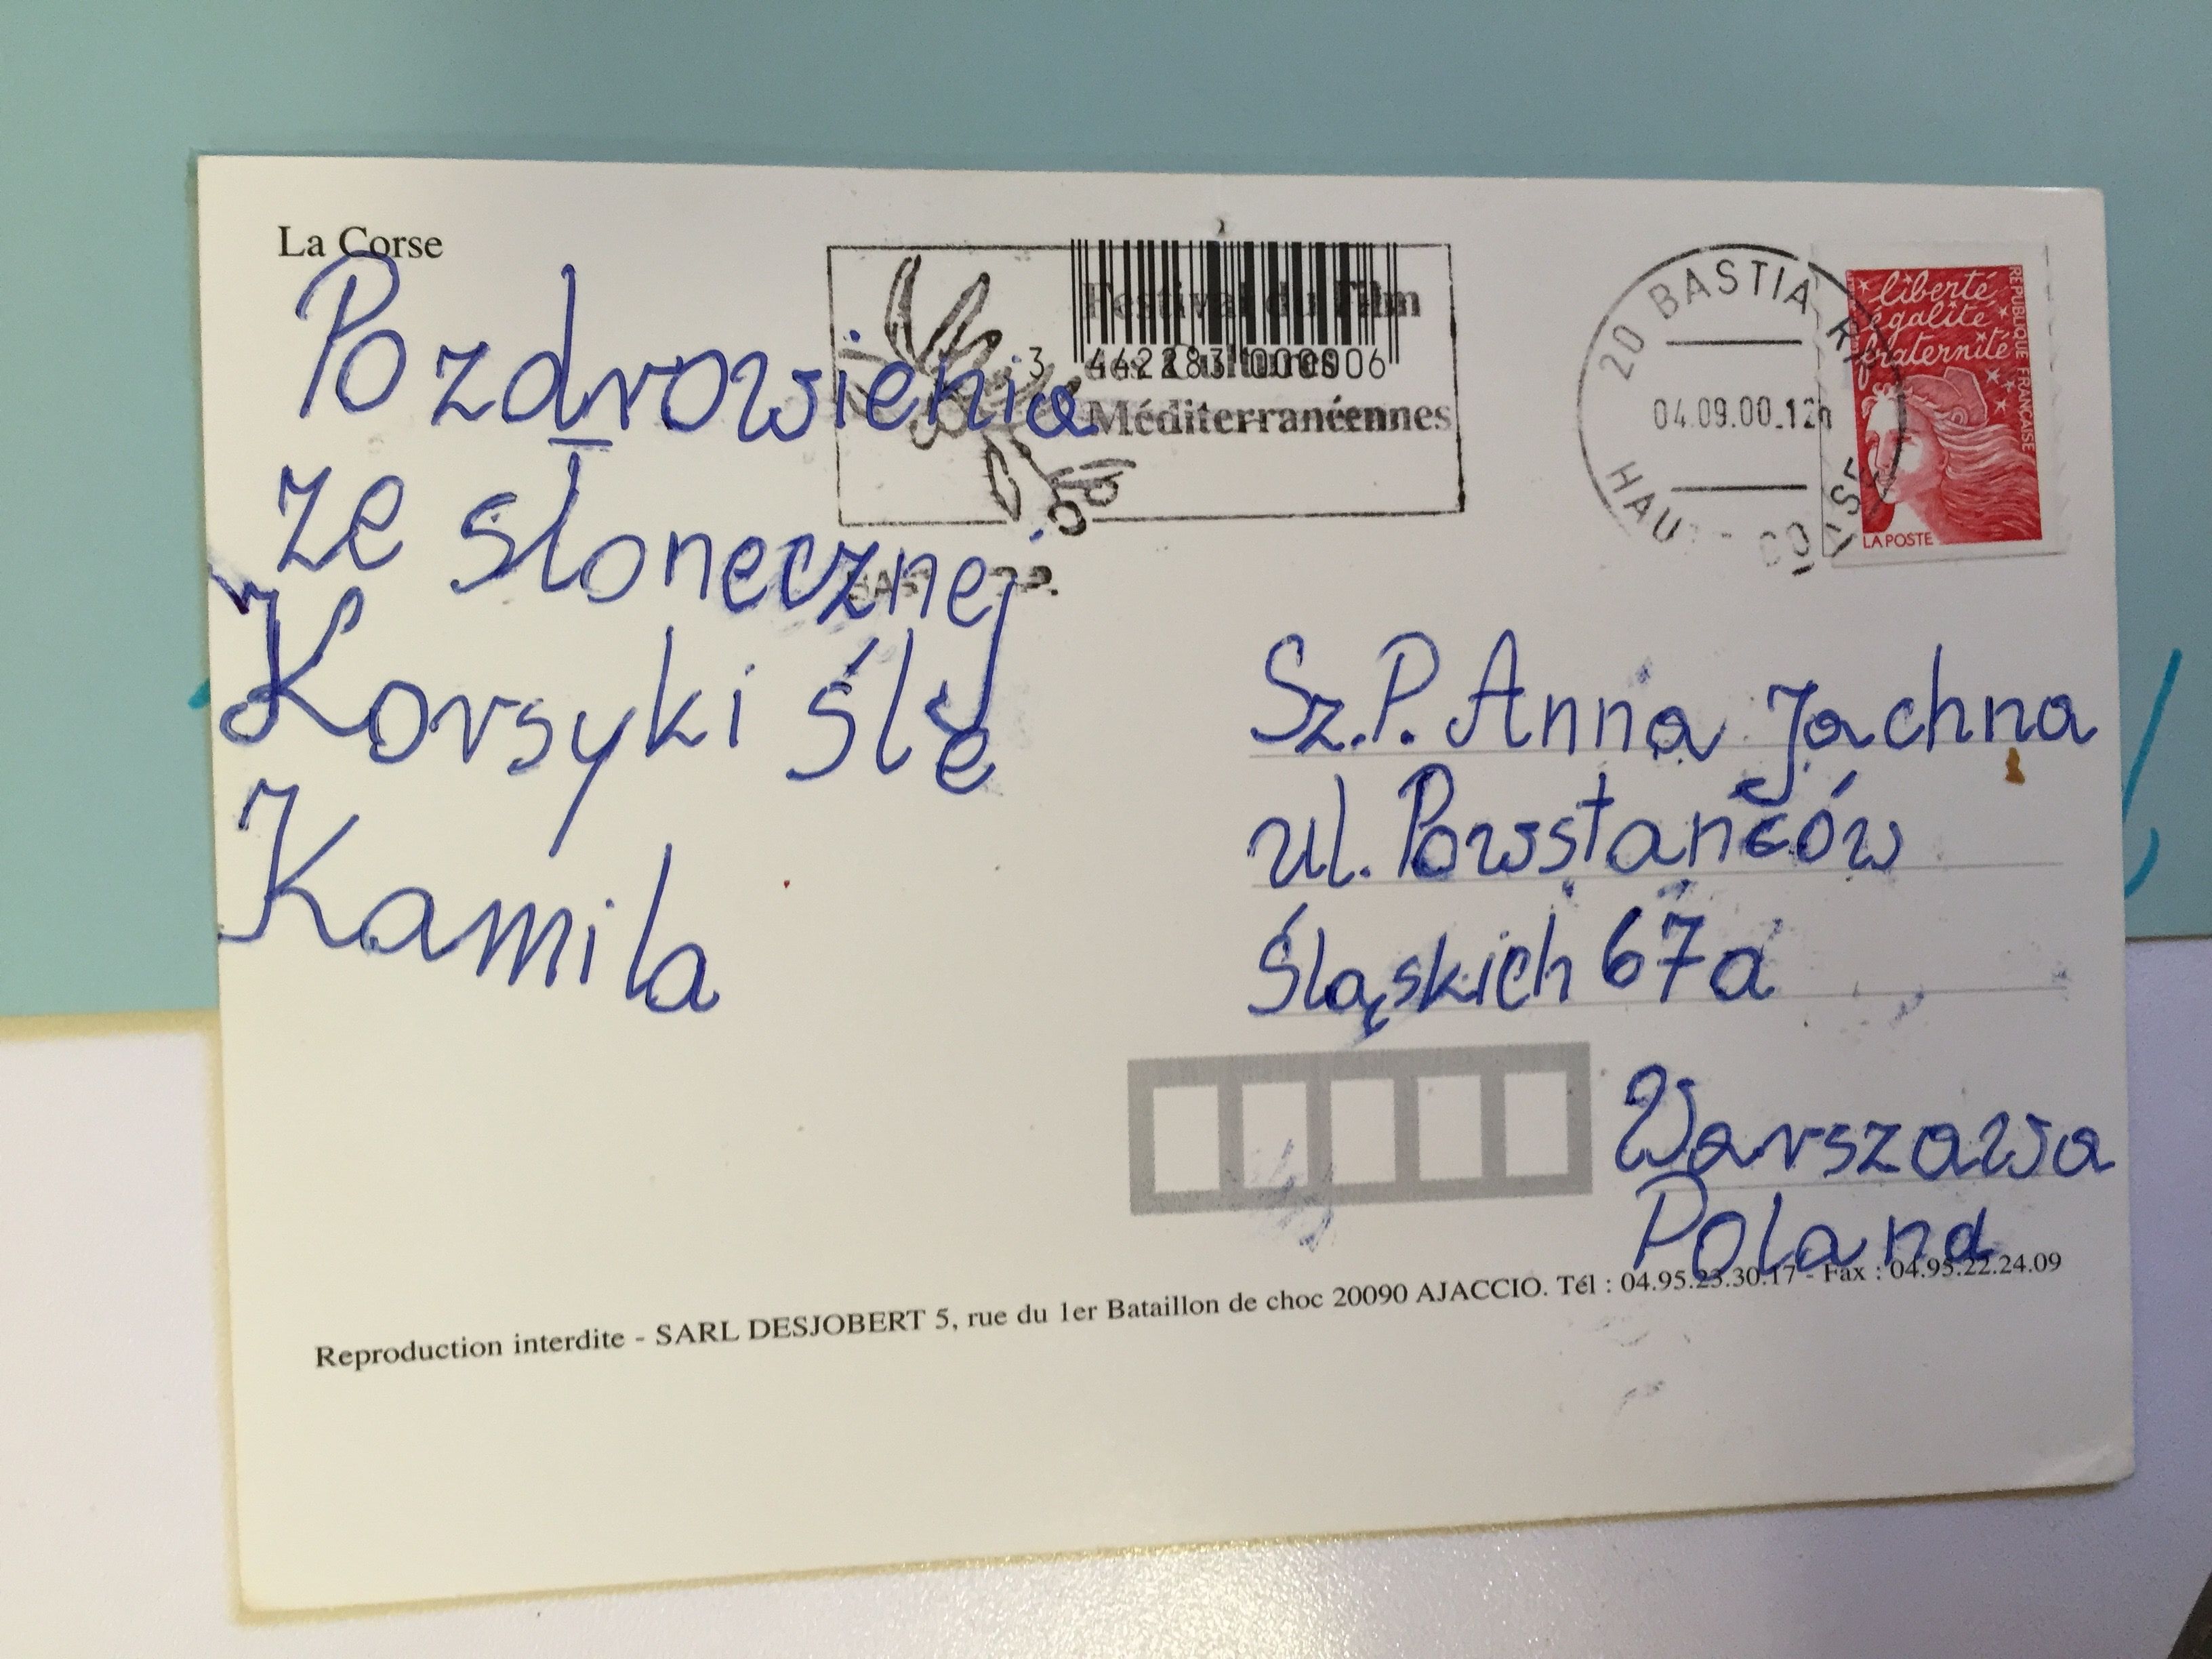 La Corse
Pozdrowienia
ze słonecznej
Korsyki ślę
Kamila
Festival du Film
des Cultures
Méditerranéennes
3 442283 000006
20 BASTIA R.P.
04.09.00.12h
HAUTE CORSE
liberté
égalité
fraternité
RÉPUBLIQUE FRANÇAISE
LA POSTE
Sz.P. Anna Jachna
ul. Powstańców
Śląskich 67a
Warszawa
Poland
Reproduction interdite - SARL DESJOBERT 5, rue du 1er Bataillon de choc 20090 AJACCIO. Tél : 04.95.23.30.17 - Fax : 04.95.22.24.09